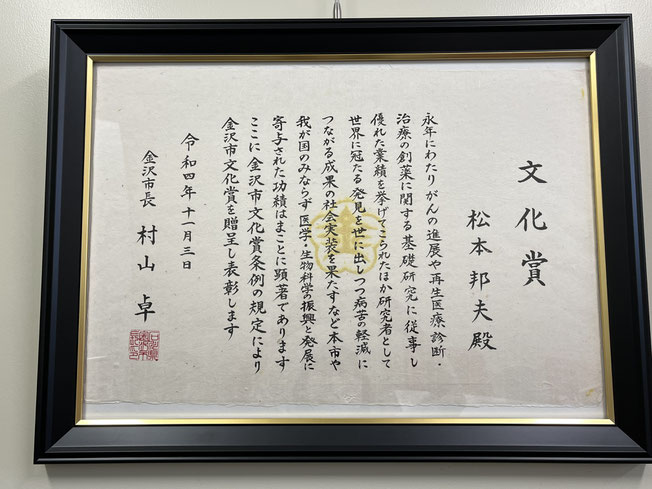 文化賞
松本邦夫殿
永年にわたりがんの進展や再生医療診断・
治療の創薬に関する基礎研究に従事し
優れた業績を挙げてこられたほか研究者として
世界に冠たる発見を世に出しつつ病苦の軽減に
つながる成果の社会実装を果たすなど本市や
我が国のみならず医学・生物科学の振興と発展に
寄与された功績はまことに顕著であります
ここに金沢市文化賞条例の規定により
金沢市文化賞を贈呈し表彰します
令和四年十一月三日
金沢市長 村山 卓